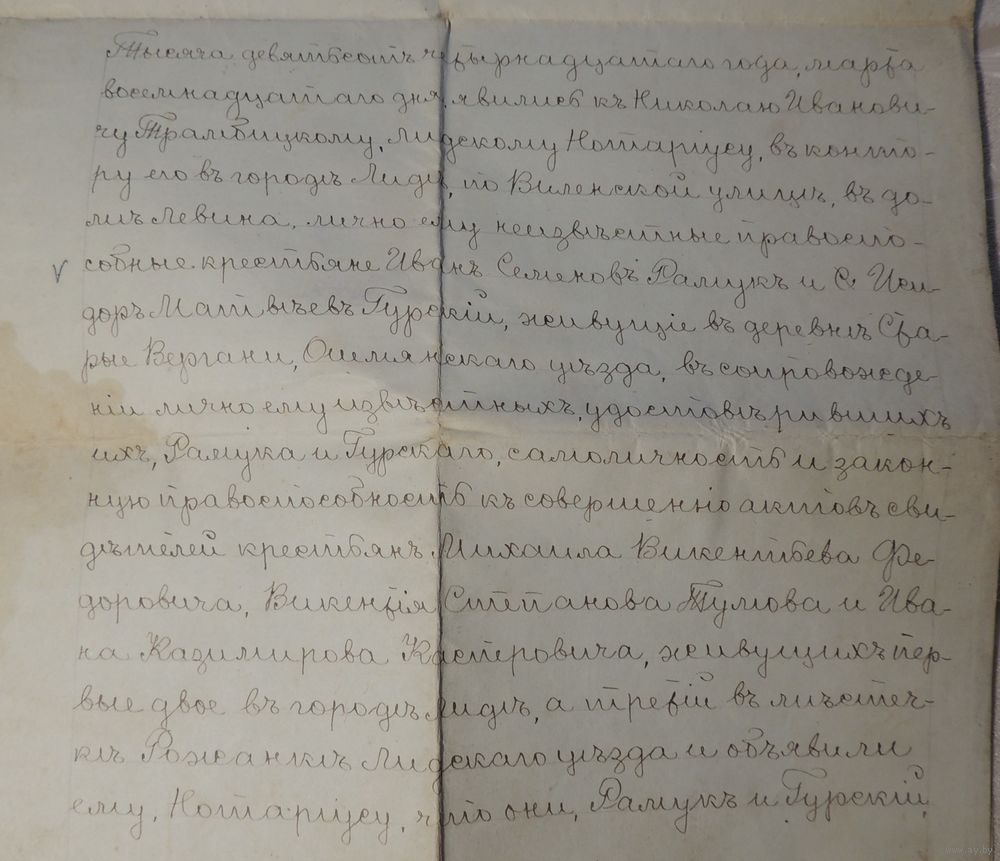 Тысяча девятьсотъ четырнадцатаго года, марта
восемнадцатаго дня, явились къ Николаю Иванови-
чу Трамбицкому, Лидскому Нотаріусу, въ конто-
ру его въ городѣ Лидѣ, по Виленской улицѣ, въ до-
мѣ Левина, лично ему неизвѣстные правоспо-
собные крестьяне Иванъ Семеновъ Рамукъ и Иси-
доръ Матвѣевъ Гурскій, живущіе въ деревнѣ Ста-
рые Вергани, Ошмянскаго уѣзда, въ сопровожде-
ніи лично ему извѣстныхъ, удостовѣрившихъ
ихъ, Рамука и Гурскаго, самоличность и закон-
ную правоспособность къ совершенію актовъ сви-
дѣтелей крестьянъ Михаила Викентьева Фе-
доровича, Викентія Степанова Тумова и Ива-
на Казимирова Касперовича, живущихъ пер-
вые двое въ городѣ Лидѣ, а третій въ мѣстеч-
кѣ Рожанкѣ Лидскаго уѣзда и объявили
ему, Нотаріусу, что они, Рамукъ и Гурскій,
www.ay.by